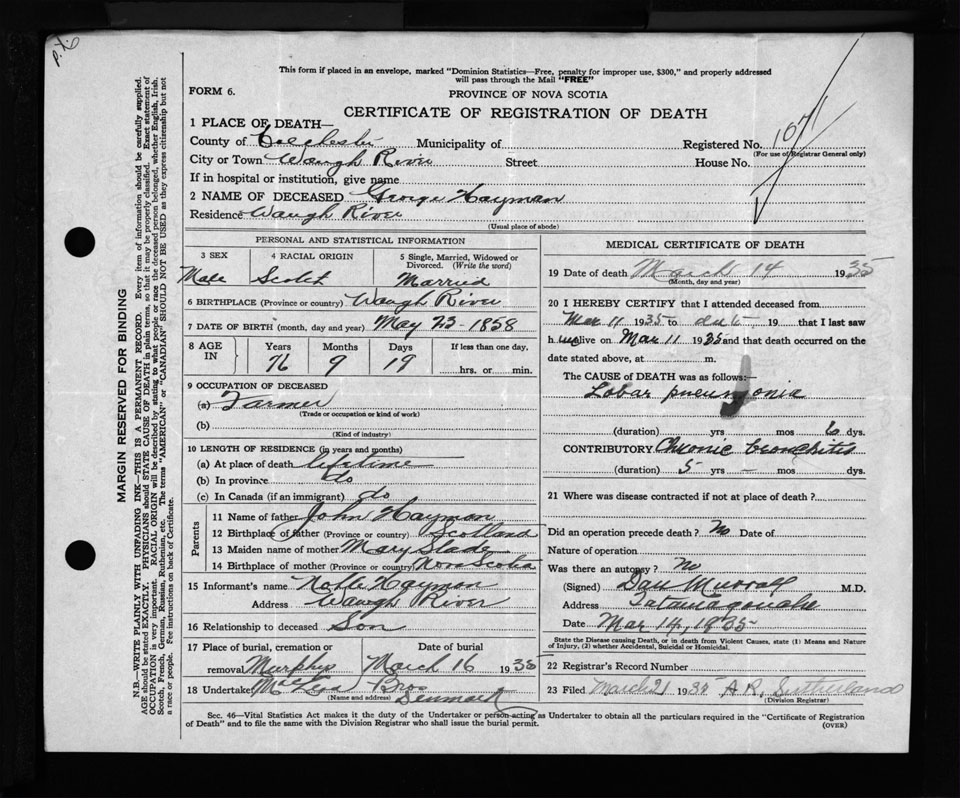 This form if placed in an envelope, marked "Dominion Statistics—Free, penalty for improper use, $300," and properly addressed
will pass through the Mail "FREE"
FORM 6.
PROVINCE OF NOVA SCOTIA
CERTIFICATE OF REGISTRATION OF DEATH
1 PLACE OF DEATH—
County of Colchester Municipality of Registered No. 107
(For use of Registrar General only)
City or Town Waugh River Street House No.
If in hospital or institution, give name
2 NAME OF DECEASED George Hayman
Residence Waugh River
(Usual place of abode)
PERSONAL AND STATISTICAL INFORMATION
3 SEX 4 RACIAL ORIGIN 5 Single, Married, Widowed or
Divorced. (Write the word)
Male Scotch Married
6 BIRTHPLACE (Province or country) Waugh River
7 DATE OF BIRTH (month, day and year) May 23-1858
8 AGE
IN
Years Months Days If less than one day.
76 9 19 hrs. or min.
9 OCCUPATION OF DECEASED
(a) Farmer
(Trade or occupation or kind of work)
(b)
(Kind of industry)
10 LENGTH OF RESIDENCE (in years and months)
(a) At place of death lifetime
(b) In province do
(c) In Canada (if an immigrant) do
Parents
11 Name of father John Hayman
12 Birthplace of father (Province or country) Scotland
13 Maiden name of mother Mary Slade
14 Birthplace of mother (Province or country) Nova Scotia
15 Informant's name Hayman
Address Waugh River
16 Relationship to deceased Son
17 Place of burial, cremation or
removal Murphys March 16 1935
18 Undertaker Bros
(Name and address) Denmark
MEDICAL CERTIFICATE OF DEATH
19 Date of death March 14 1935
(Month, day and year)
20 I HEREBY CERTIFY that I attended deceased from
Mar 11 1935 to date, 19 that I last saw
h im alive on Mar 11 1935 and that death occurred on the
date stated above, at m.
The CAUSE of DEATH was as follows:—
Lobar pneumonia
(duration) yrs mos 6 dys.
CONTRIBUTORY Chronic bronchitis
(duration) 5 yrs - mos dys.
21 Where was disease contracted if not at place of death?
Did an operation precede death? No Date of
Nature of operation
Was there an autopsy? No
(Signed) Dan Murray M.D.
Address Tatamagouche
Date Mar 14, 1935
State the Disease causing Death, or in death from Violent Causes, state (1) Means and Nature
of Injury, (2) whether Accidental, Suicidal or Homicidal.
22 Registrar's Record Number
23 Filed March 21 1935 A.R. Sutherland
(Division Registrar)
Sec. 46—Vital Statistics Act makes it the duty of the Undertaker or person acting as Undertaker to obtain all the particulars required in the "Certificate of Registration
of Death" and to file the same with the Division Registrar who shall issue the burial permit.
(OVER)
MARGIN RESERVED FOR BINDING
N.B.—WRITE PLAINLY WITH UNFADING INK—THIS IS A PERMANENT RECORD. Every item of information should be carefully supplied.
AGE should be stated EXACTLY. PHYSICIANS should STATE CAUSE OF DEATH in plain terms, so that it may be properly classified. Exact statement of
OCCUPATION is very important. RACIAL ORIGIN will be described by stating to what people or race the deceased person belonged, whether English, Irish,
Scotch, French, German, Russian, Ruthenian, etc. The terms "AMERICAN" or "CANADIAN" SHOULD NOT BE USED as they express citizenship but not
a race or people. Fee instructions on back of Certificate.